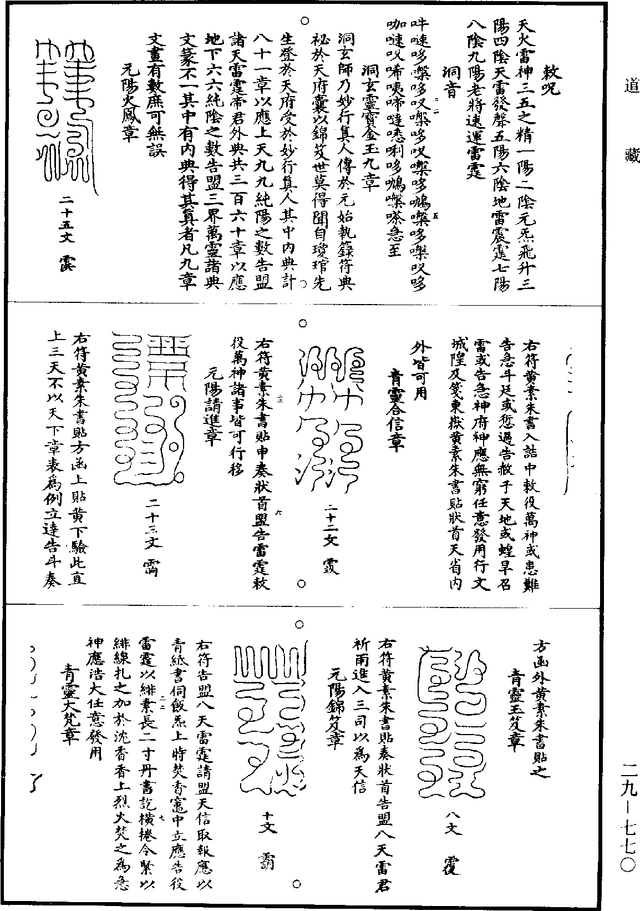 道藏
敕呪
天火雷神三五之精一陽二陰元炁飛升三
陽四陰天雷發聲五陽六陰地雷震霆七陽
八陰九陽老將速運雷霆
洞音
急至
洞玄靈寶金玉九章
洞玄師乃妙行真人傳於元始執籙符典
祕於天府囊以錦笈世莫得聞自瓊琯先
生登於天府受於妙行真人其中內典計
八十一章以應上天九九純陽之數告盟
諸天雷霆帝君外典共三百六十章以應
地下六六純陰之數告盟三界萬靈諸典
文篆不一其中有內典得其真者凡九章
文畫有數庶可無誤
元陽火鳳章
二十五文
右符黃素朱書入詰中敕役萬神或患難
告急斗廷或愆過告赦于天地或蝗旱召
雷或告急神府神應無窮任意發用行文
城隍及箋東嶽黃素朱書貼狀首天省內
外皆可用
青靈合信章
二十二文
右符黃素朱書貼申奏狀首盟告雷霆敕
役萬神諸事皆可行移
元陽請進章
二十三文
右符黃素朱書貼方函上貼黃下驗此直
上三天不以天下章表為例立達告斗奏
方函外黃素朱書貼之
青靈玉笈章
八文
右符黃素朱書貼奏狀首告盟八天雷君
祈雨進入三司以為天信
元陽錦笈章
十文 霸
右符告盟八天雷霆請盟天信取報應以
青紙書伺飯炁上時焚香竈中立應告役
雷霆以緋素長二寸丹書訖橫捲令緊以
緋線扎之加於沈香香上烈火焚之為急
神應浩大任意發用
青靈大梵章
二九—七七〇